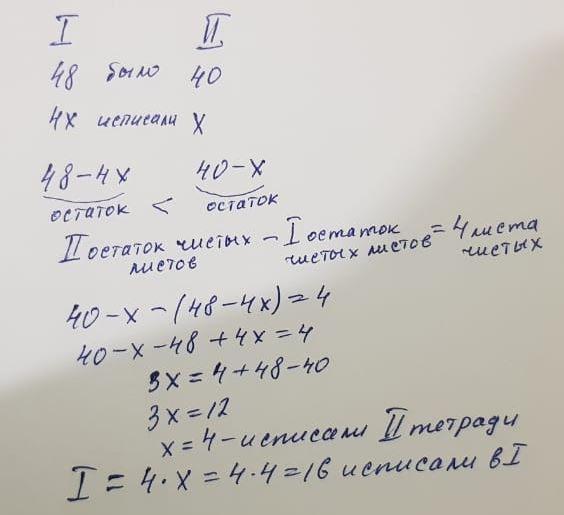 I II
48 было 40
4x исписали x
48-4x 40-x
остаток < остаток
II остаток чистых - I остаток = 4 листа
листов чистых листов чистых
40-x-(48-4x)=4
40-x-48+4x=4
3x=4+48-40
3x=12
x=4-исписали II тетради
I = 4·x = 4·4=16 исписали в I